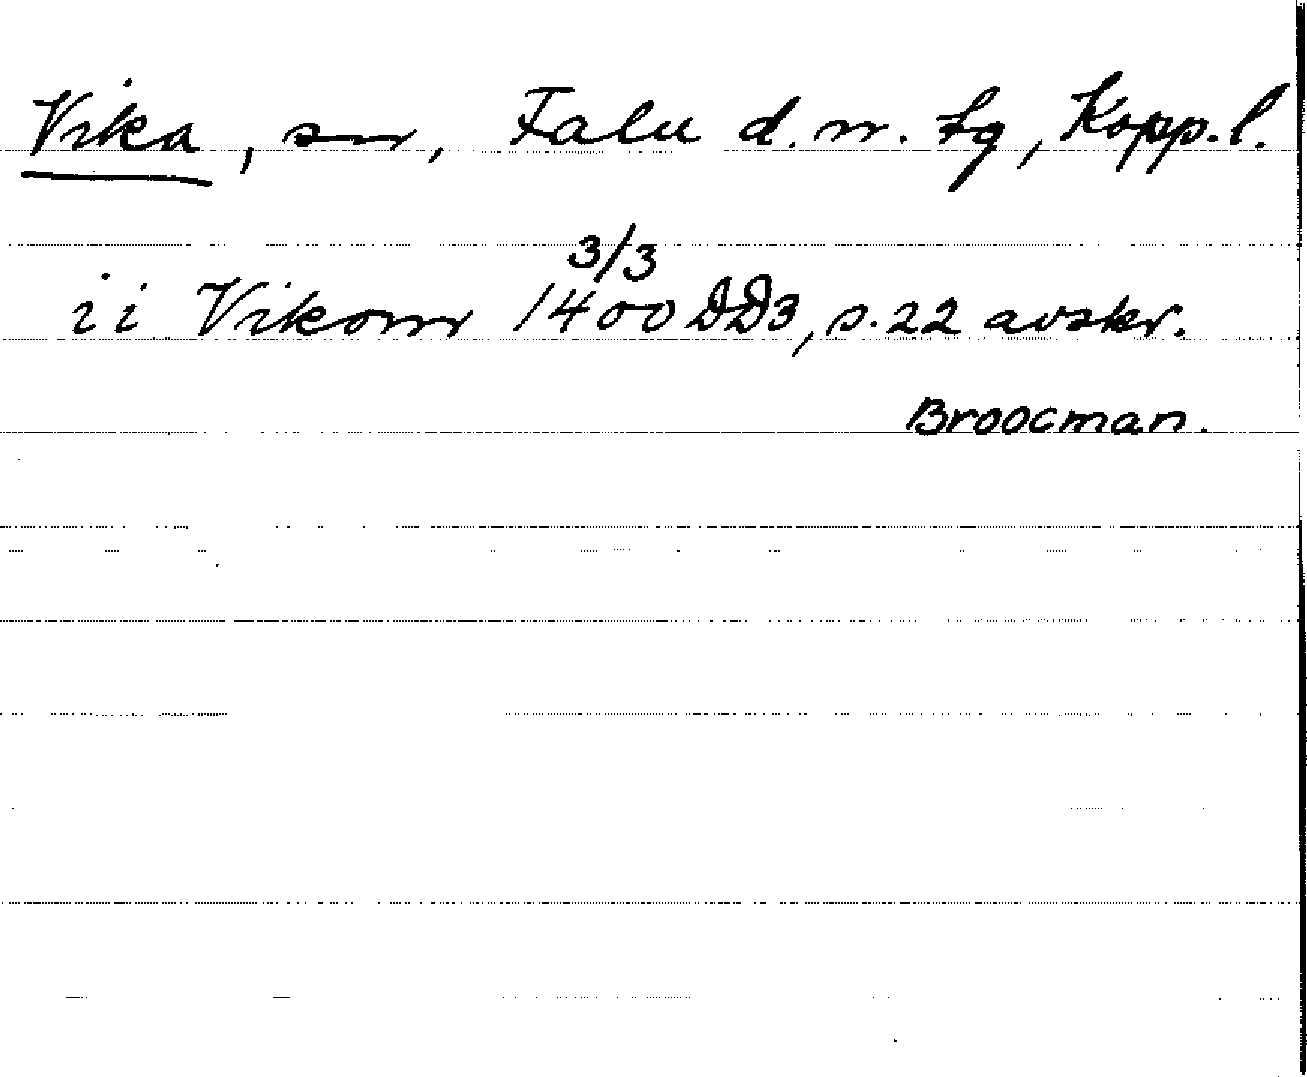 Vika, sn, Falu d. n. tg, Kopp. l.
3/3
i i Vikom 1400 DD3, s. 22 avskr.
Broocman.